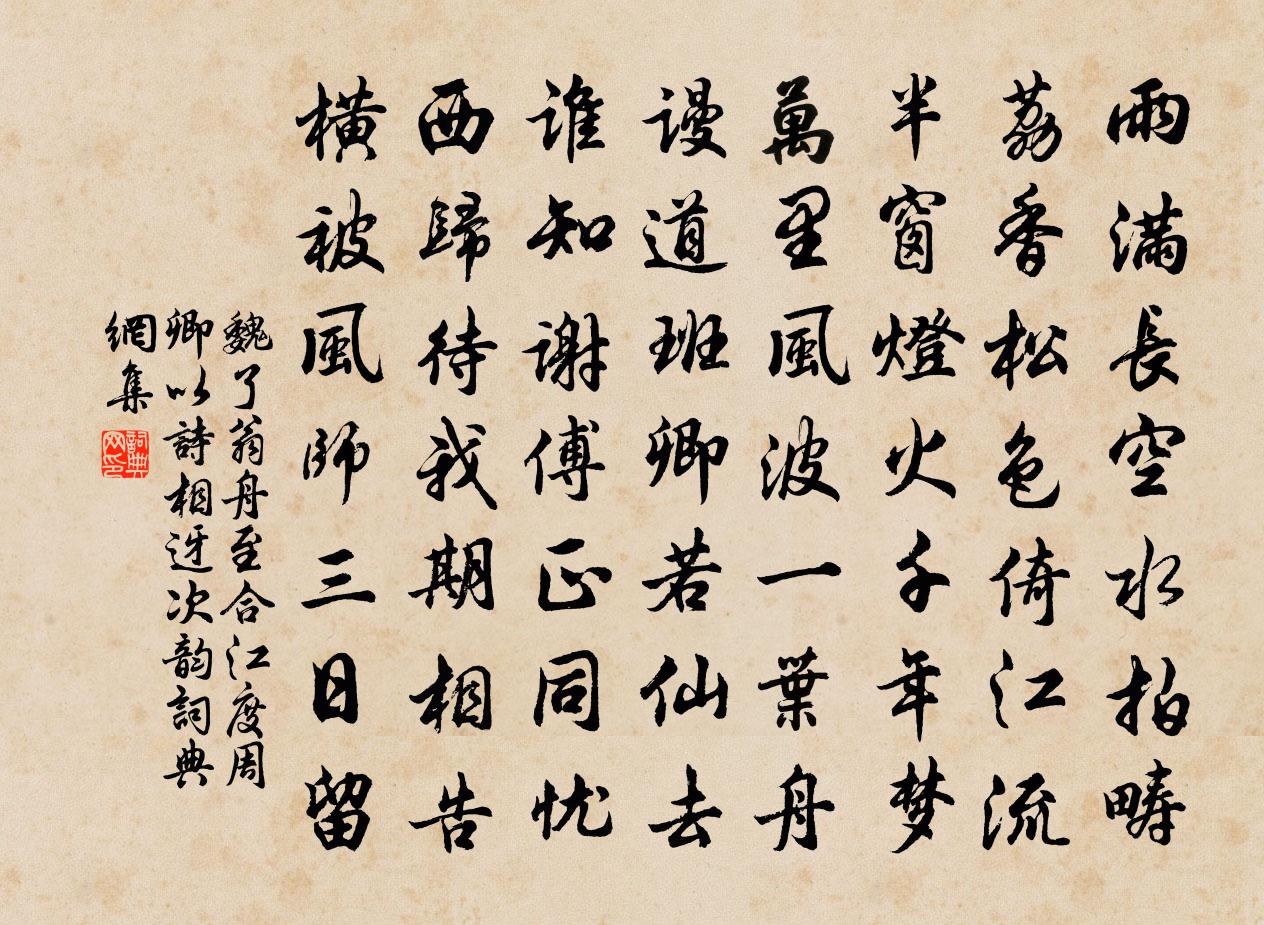 雨滿長空水拍疇
荔香松色倚江流
半窗燈火千年梦
萬里風波一葉舟
謾道班卿若仙去
誰知謝傅正同忧
西歸待我期相告
橫被風師三日留
魏了翁舟至合江度周
卿以詩相迓次韵詞典
網集
詞典
网印